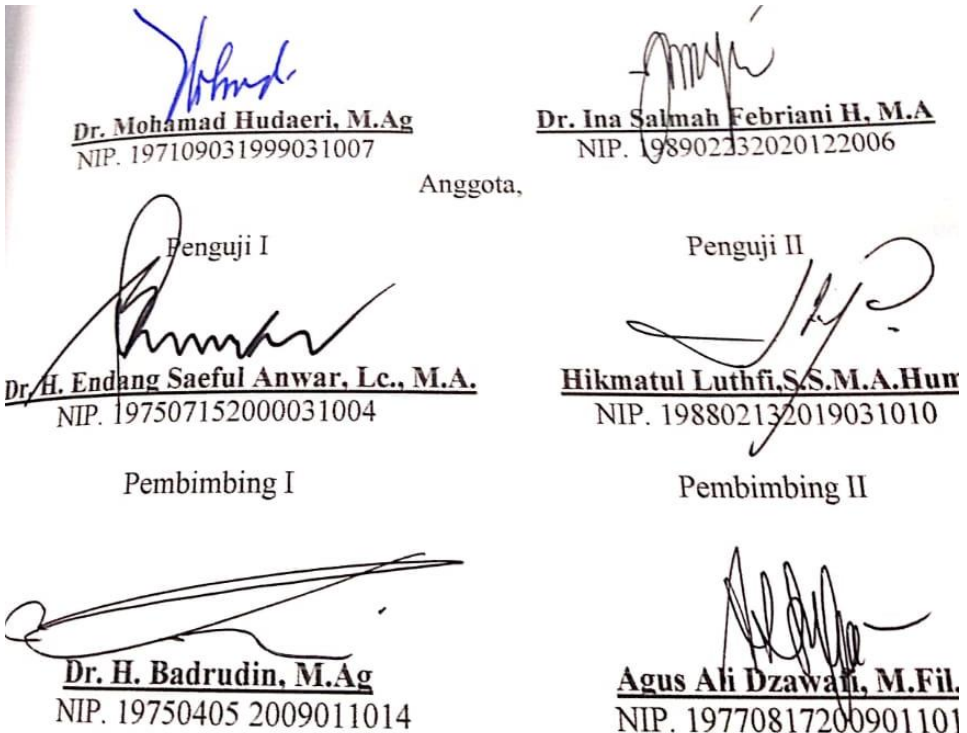 Dr. Mohamad Hudaeri, M.Ag
NIP. 197109031999031007
Dr. Ina Salmah Febriani H, M.A
NIP. 198902232020122006
Anggota,
Penguji I
Penguji II
Dr. H. Endang Saeful Anwar, Lc., M.A.
NIP. 197507152000031004
Hikmatul Luthfi,S.S.M.A.Hum
NIP. 198802132019031010
Pembimbing I
Pembimbing II
Dr. H. Badrudin, M.Ag
NIP. 19750405 2009011014
Agus Ali Dzawafi, M.Fil.
NIP. 19770817200901101